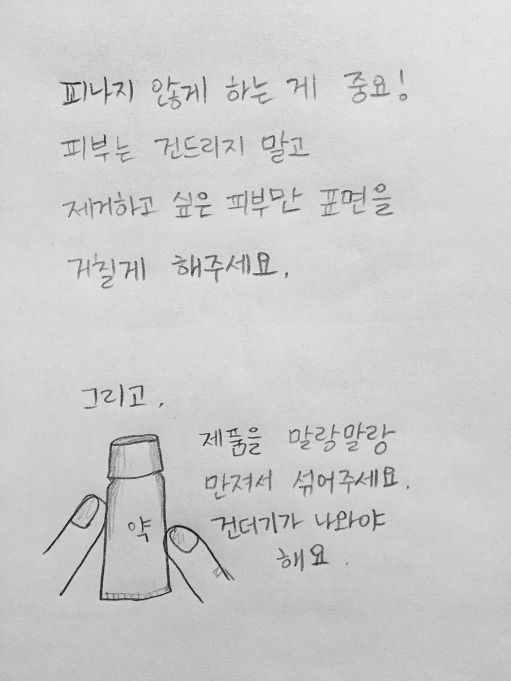 피나지 않게 하는 게 중요!
피부는 건드리지 말고
제거하고 싶은 피부만 표면을
거칠게 해주세요.
그리고,
제품을 말랑말랑
만져서 섞어주세요.
건더기가 나와야
해요.
약